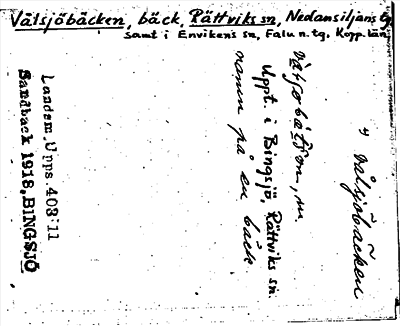 Välsjöbäcken, bäck, Rättviks sn, Nedansiljans tg
samt i Envikens sn, Falu n. tg, Kopp. län
y Välsjöbäcken
m.
Uppt. i Bingsjö, Rättviks sn.
namn på en bäck.
Landsm. Upps. 403:11
Sandback 1918, BINGSJÖ